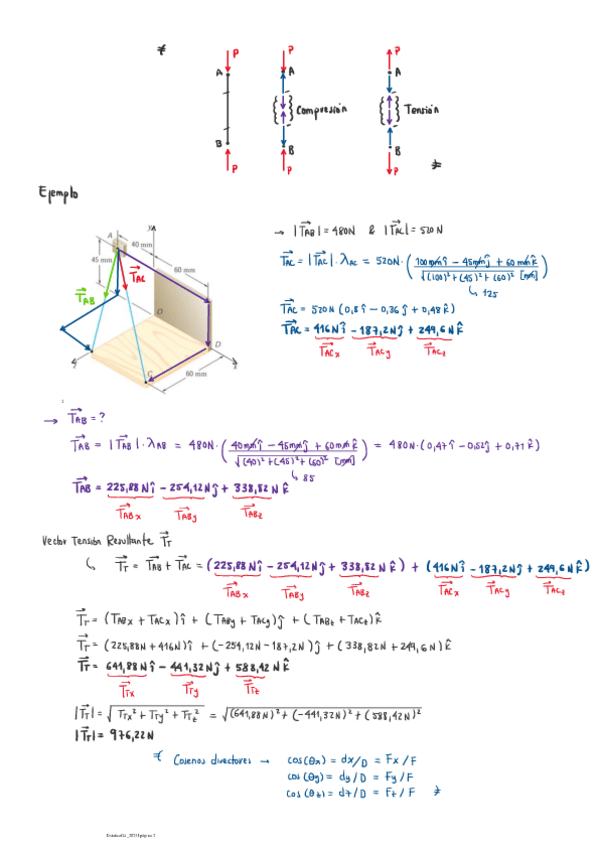 P P P
A A A
Compresión Tensión
B B B
P P P
Ejemplo
A 40 mm y
45 mm 60 mm
T⃗AC
T⃗AB
O
D
z x
C
60 mm
→ |T⃗AB| = 480N & |T⃗AC| = 520N
T⃗AC = |T⃗AC| · λAC = 520N · ( (100mm î − 45mm ĵ + 60mm k̂) / √((100)² + (45)² + (60)²) [mm] )
↳ 125
T⃗AC = 520N (0,8 î − 0,36 ĵ + 0,48 k̂)
T⃗AC = 416N î − 187,2N ĵ + 249,6N k̂
T⃗ACx T⃗ACy T⃗ACz
→ T⃗AB = ?
T⃗AB = |T⃗AB| · λAB = 480N · ( (40mm î − 45mm ĵ + 60mm k̂) / √((40)² + (45)² + (60)²) [mm] ) = 480N · (0,47 î − 0,52 ĵ + 0,71 k̂)
↳ 85
T⃗AB = 225,88 N î − 254,12 N ĵ + 338,82 N k̂
T⃗ABx T⃗ABy T⃗ABz
Vector Tensión Resultante T⃗T
↳ T⃗T = T⃗AB + T⃗AC = (225,88 N î − 254,12 N ĵ + 338,82 N k̂) + (416N î − 187,2N ĵ + 249,6N k̂)
T⃗ABx T⃗ABy T⃗ABz T⃗ACx T⃗ACy T⃗ACz
T⃗T = (TABx + TACx) î + (TABy + TACy) ĵ + (TABz + TACz) k̂
T⃗T = (225,88N + 416N) î + (−254,12N − 187,2N) ĵ + (338,82N + 249,6N) k̂
T⃗T = 641,88 N î − 441,32 N ĵ + 588,42 N k̂
T⃗Tx T⃗Ty T⃗Tz
|T⃗T| = √(TTx² + TTy² + TTz²) = √((641,88N)² + (−441,32N)² + (588,42N)²)
|T⃗T| = 976,22N
Cosenos directores → cos(θx) = dx/D = Fx/F
cos(θy) = dy/D = Fy/F
cos(θz) = dz/D = Fz/F